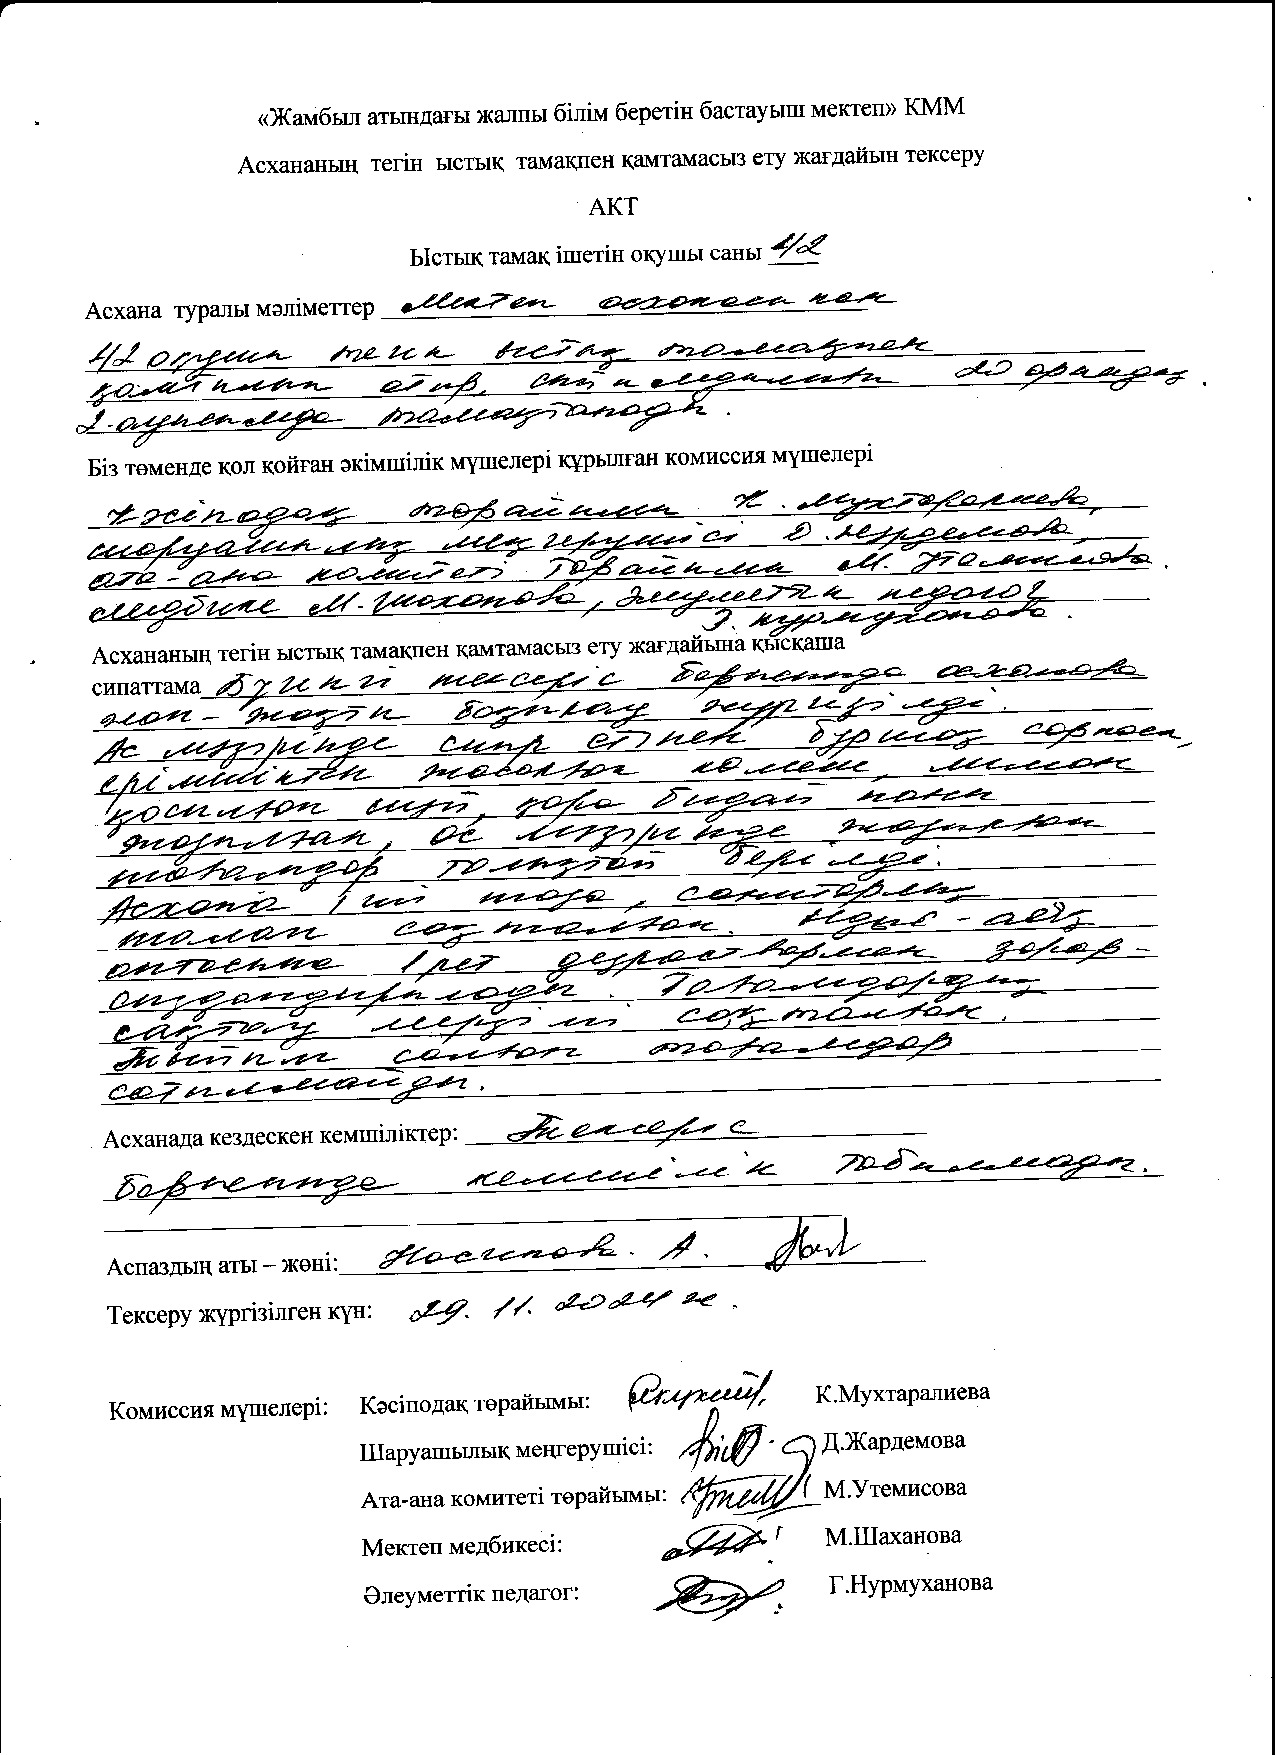 «Жамбыл атындағы жалпы білім беретін бастауыш мектеп» КММ
Асхананың тегін ыстық тамақпен қамтамасыз ету жағдайын тексеру
АКТ
Ыстық тамақ ішетін оқушы саны 42
Асхана туралы мәліметтер Мектеп асханасынан
42 оқушы тегін ыстық тамақпен
қамтылып отыр, 20 орындық
2-ауысымда тамақтанады.
Біз төменде қол қойған әкімшілік мүшелері құрылған комиссия мүшелері
Кәсіподақ төрайымы К. Мухтаралиева,
шаруашылық меңгерушісі Д. Жардемова,
ата-ана комитеті төрайымы М. Утемисова.
медбике М. Шаханова, әлуметтік педагог
Г. Нурмуханова.
Асхананың тегін ыстық тамақпен қамтамасыз ету жағдайына қысқаша
сипаттама Бүгінгі тексеріс барысында асханаға
жан-жақты бақылау жүргізілді.
Ас мәзірінде сиыр етінен бұршақ сорпасы,
ірімшіктен жасалған көмеш, лимон
қосылған шәй, қара бидай наны
жазылған, ас мәзірінде жазылған
тағамдар толықтай берілді.
Асхана іші таза, санитарлық
талап сақталған. Ыдыс-аяқ
аптасына 1 рет дезраствормен зарар-
сыздандырылады. Тағамдардың
сақталу мерзімі сақталған.
Тыйым салған тағамдар
сатылмайды.
Асханада кездескен кемшіліктер: Тексеріс
барысында кемшілік табылмады.
Аспаздың аты – жөні: Насипова. А.
Тексеру жүргізілген күн: 29. 11. 2024 ж.
Комиссия мүшелері: Кәсіподақ төрайымы: К.Мухтаралиева
Шаруашылық меңгерушісі: Д.Жардемова
Ата-ана комитеті төрайымы: М.Утемисова
Мектеп медбикесі: М.Шаханова
Әлеуметтік педагог: Г.Нурмуханова